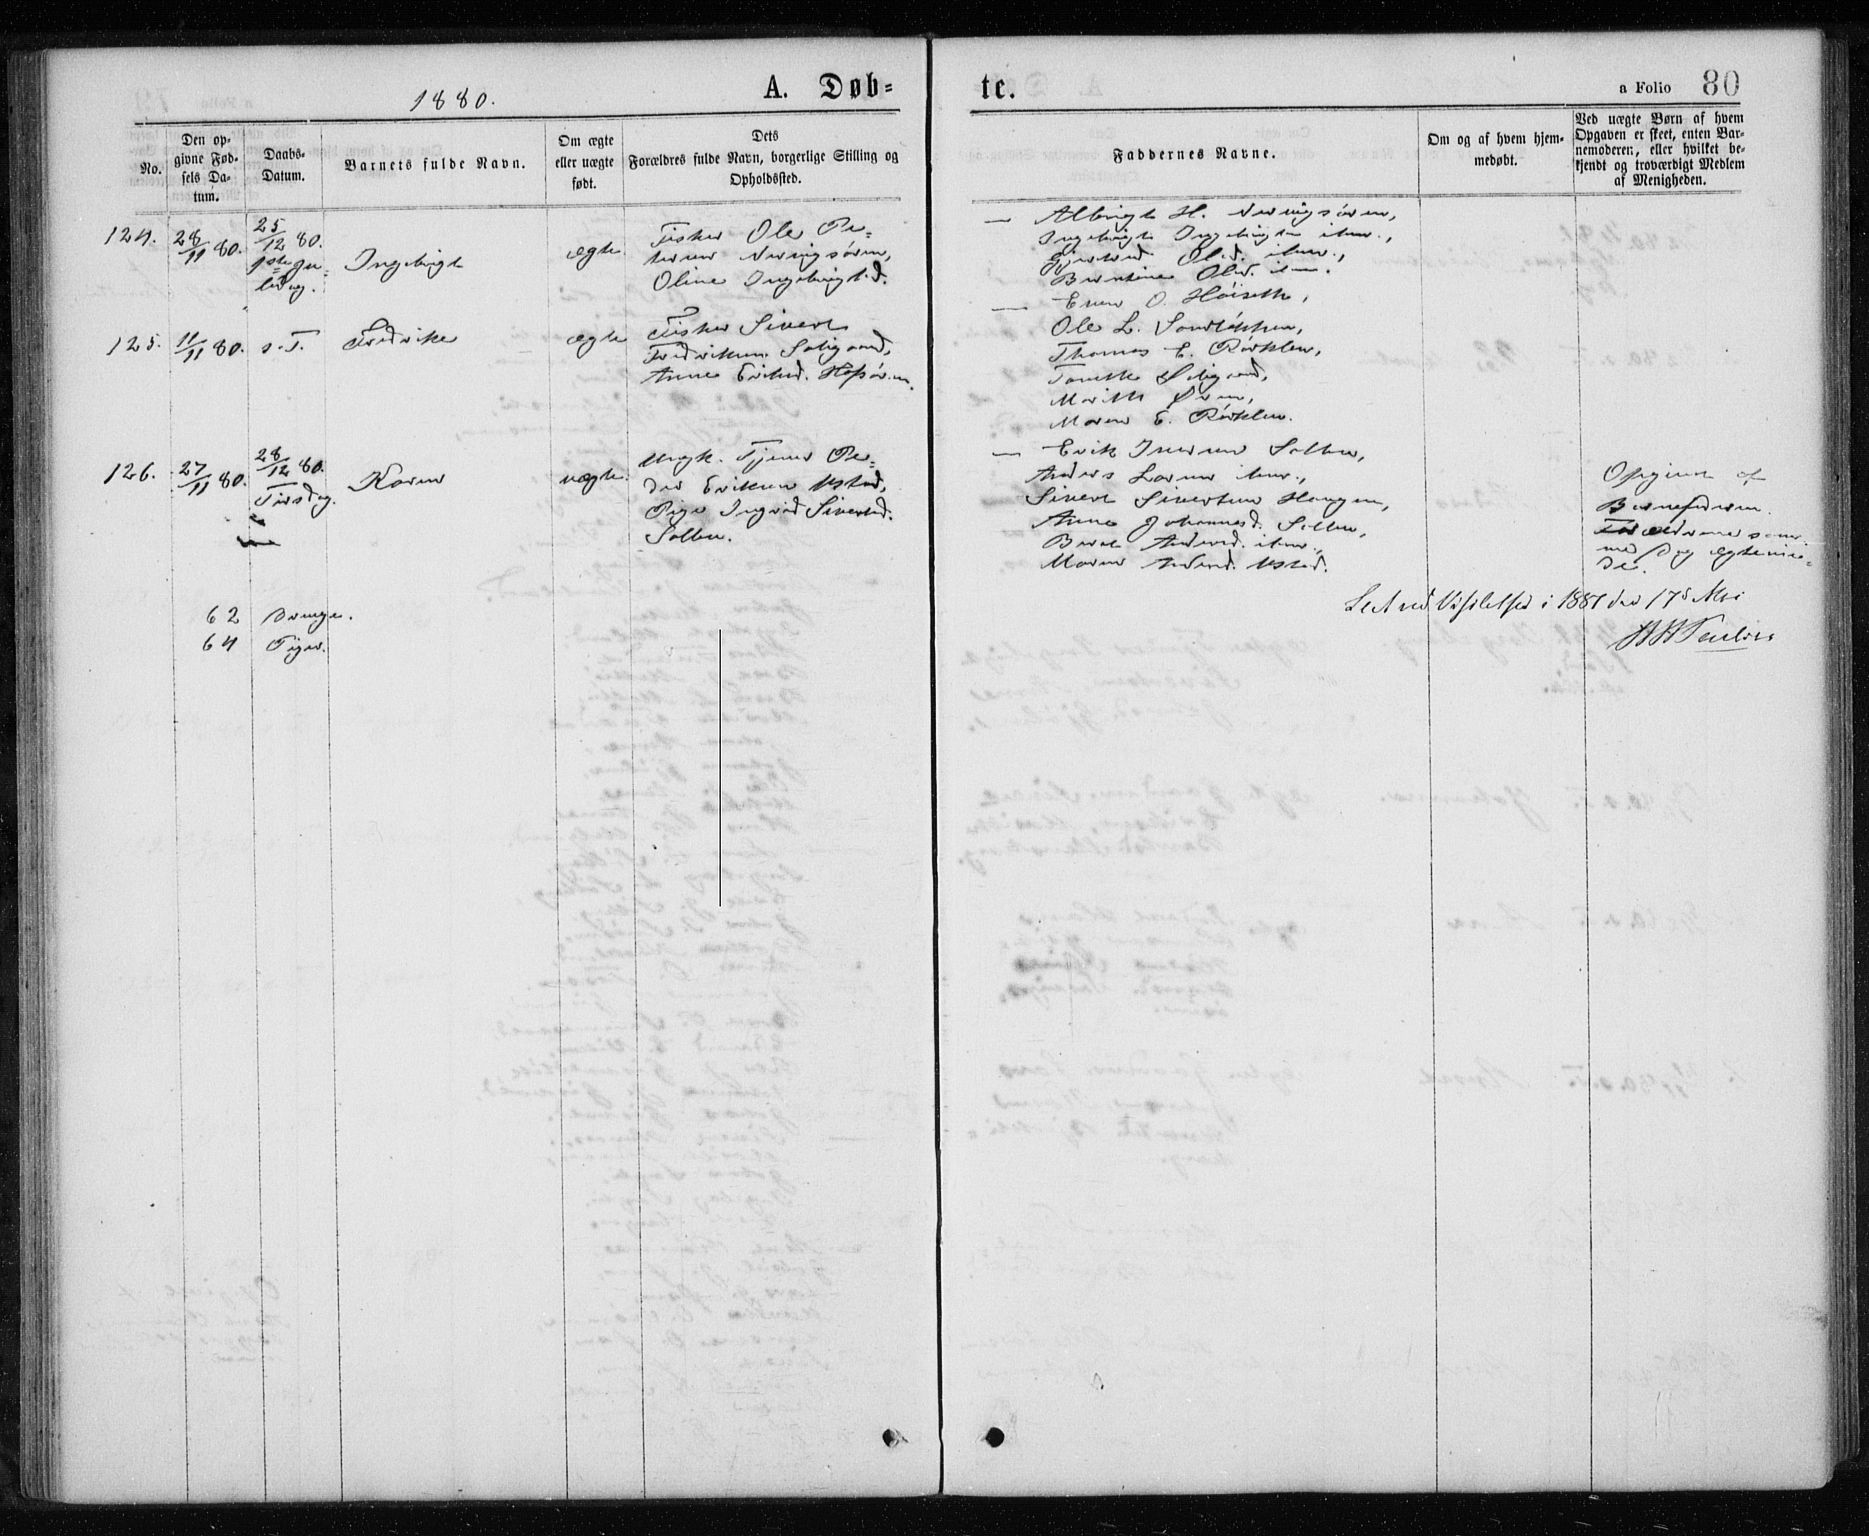 1880.
A. Døb=
te.
a Folio 80
No.
Den op-
givne Fød-
sels Da-
tum.
Daabs-
Datum.
Barnets fulde Navn.
Om ægte
eller uægte
født.
Dets
Forældres fulde Navn, borgerlige Stilling og
Opholdssted.
Faddernes Navne.
Om og af hvem hjem-
medøbt.
Ved uægte Børn af hvem
Opgaven er skeet, enten Bar-
nemoderen, eller hvilket be-
kjendt og troværdigt Medlem
af Menigheden.
124.
28/11 80.
25/12 80.
1ste Ju-
ledag.
Ingebrigt
ægte
Fisker Ole Pe-
tersen
Oline Ingebrigtsd.
— Albrigt H.
Ingebrigt
Gjertrud Olsd. ibm.,
Berntine Olsd. ibm.
— Even O. Høiseth,
125.
11/11 80.
s. T.
Fredrike
ægte
Fisker Sivert
Fredriksen
Anne Eriksd.
Ole L.
Thomas E.
Marith
Maren E.
126.
27/11 80.
28/12 80.
Tirsdag.
Karen
uægte.
Ungk. Tjener Pe-
der Eriksen Ustad,
Pige Ingrid Sivertsd.
Solbu.
— Erik Iversen Solbu,
Anders Larsen ibm.,
Sivert Sivertsen Haugen,
Anne Johannesd. Solbu,
Beret Andersd. ibm.,
Maren Andersd. Ustad.
Opgivet af
Barnefaderen.
Forældrene
62 Drenge.
64 Piger.
Seet ved Visitatsen i 1881 den 17de Mai